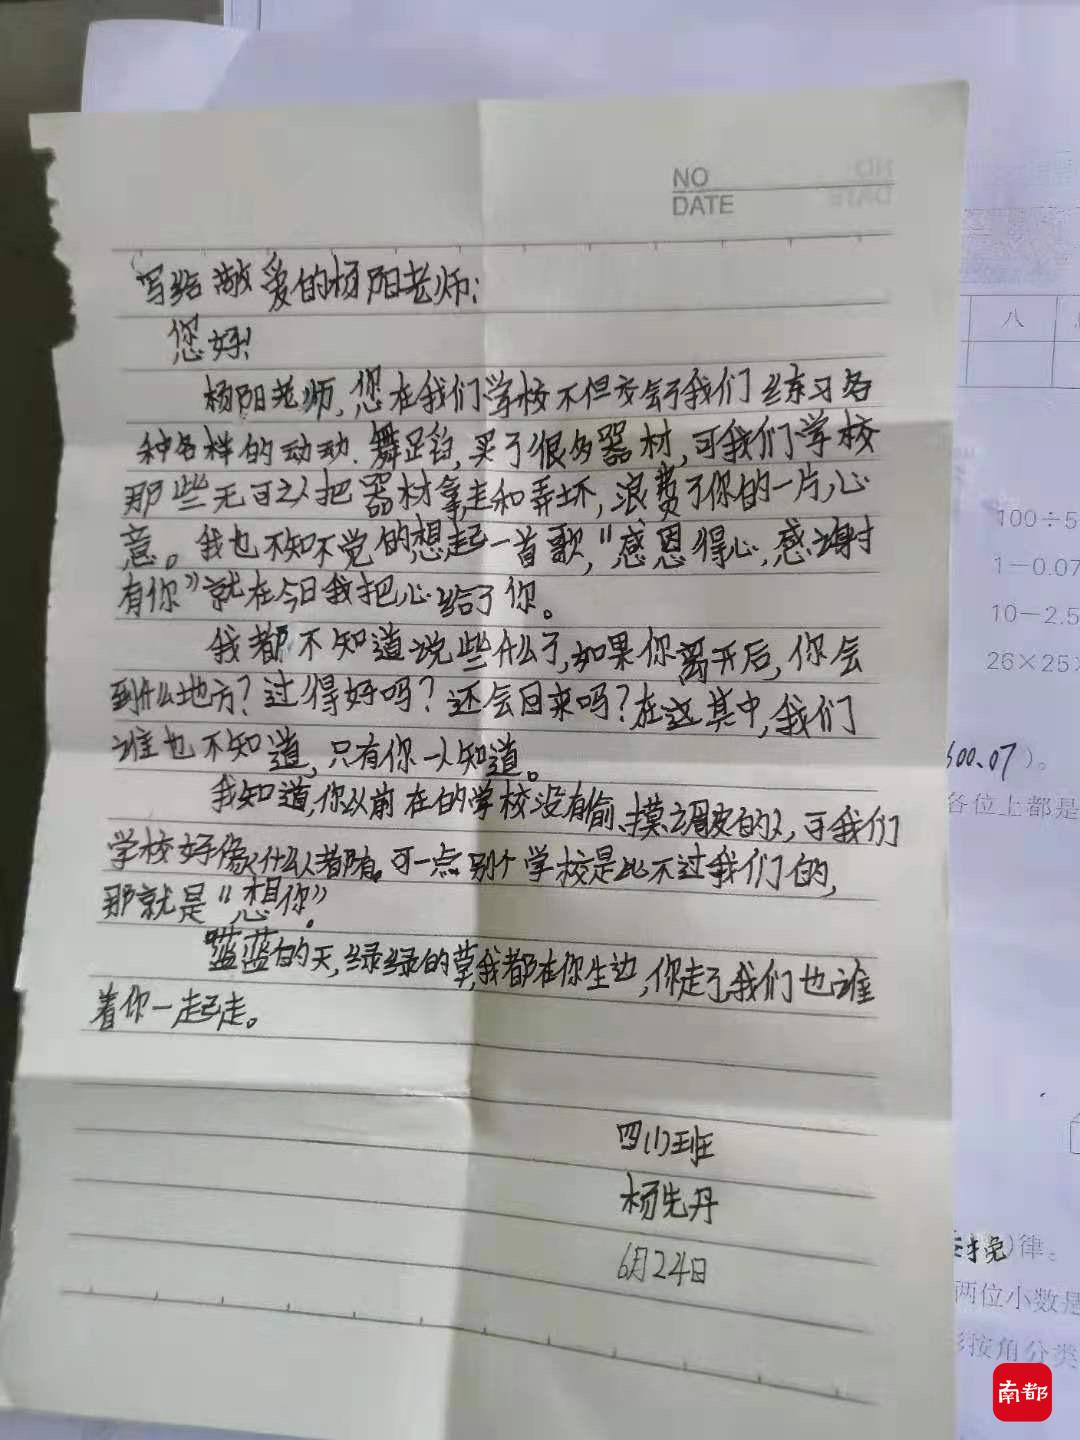 NO
DATE
写给敬爱的杨阳老师:
您好!
杨阳老师,您在我们学校不但交会了我们练习各
种各样的动动、舞蹈,买了很多器材,可我们学校
那些无可以把器材拿走和弄坏,浪费了你的一片心
意。我也不知不觉的想起一首歌,“感恩得心,感谢
有你”就在今日我把心给了你。
我都不知道说些什么了,如果你离开后,你会
到什么地方?过得好吗?还会回来吗?在这其中,我们
谁也不知道,只有你一人知道。
我知道,你以前在的学校没有偷、摸、调皮的人,可我们
学校好像什么人都有。可一点别个学校是比不过我们的,
那就是“想你”。
蓝蓝的天,绿绿的草,我都在你生边,你走了我们也谁
着你一起走。
四(1)班
杨先丹
6月24日
八
100÷5
1－0.07
10－2.5
26×25×
500.07)。
各位上都是
)律。
两位小数是
按角分类
南都